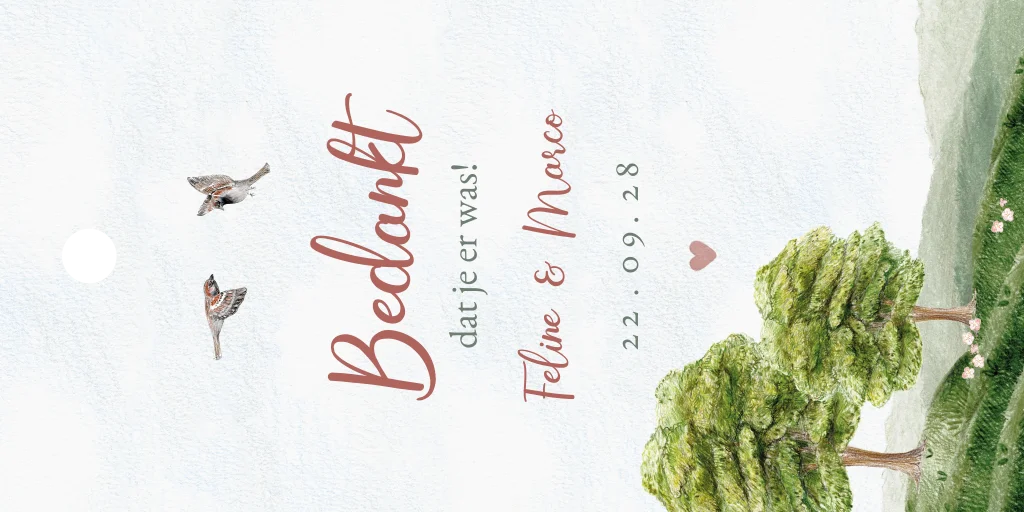 Bedankt
dat je er was!
Feline & Marco
22.09.28